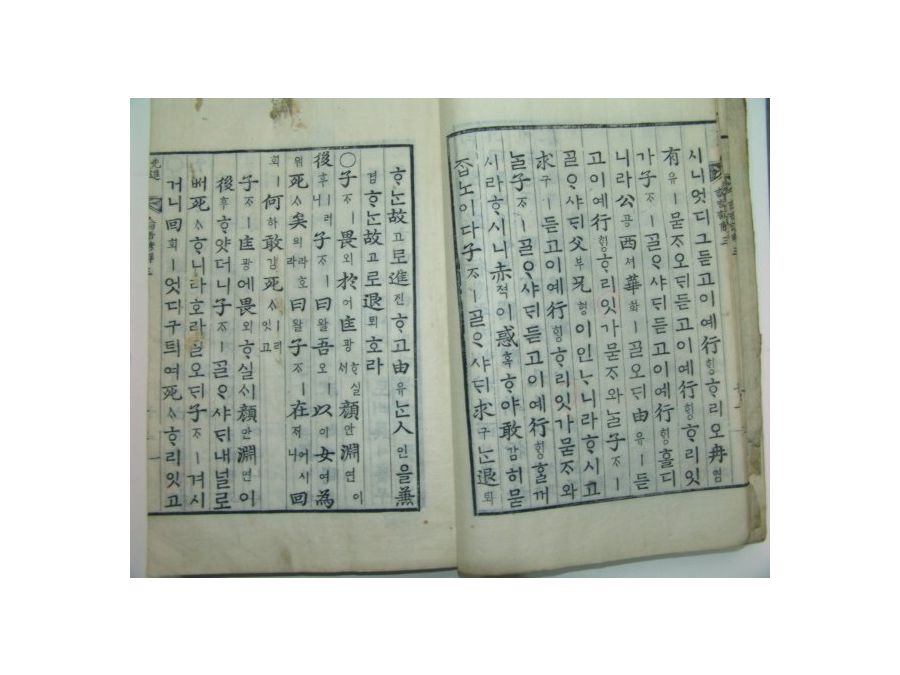 시니엇디그듣고이예行ᄒᆡᆼᄒᆞ리오冉염
有유ㅣ묻ᄌᆞ오ᄃᆡ듣고이예行ᄒᆡᆼᄒᆞ리잇
가子ᄌᆞㅣᄀᆞᆯᄋᆞ샤ᄃᆡ듣고이예行ᄒᆡᆼ홀디
니라公공西셔華화ㅣᄀᆞᆯ오ᄃᆡ由유ㅣ듣
고이예行ᄒᆡᆼᄒᆞ리잇가묻ᄌᆞ와ᄂᆞᆯ子ᄌᆞㅣ
ᄀᆞᆯᄋᆞ샤ᄃᆡ父부兄형이인ᄂᆞ니라ᄒᆞ시고
求구ㅣ듣고이예行ᄒᆡᆼᄒᆞ리잇가묻ᄌᆞ와
ᄂᆞᆯ子ᄌᆞㅣᄀᆞᆯᄋᆞ샤ᄃᆡ듣고이예行ᄒᆡᆼ홀꺼
시라ᄒᆞ시니赤적이惑혹ᄒᆞ야敢감히묻
ᄌᆞᆸ노이다子ᄌᆞㅣᄀᆞᆯᄋᆞ샤ᄃᆡ求구ᄂᆞᆫ退퇴
ᄒᆞᄂᆞᆫ故고로進진ᄒᆞ고由유ᄂᆞᆫ人인을兼
겸ᄒᆞᄂᆞᆫ故고로退퇴호라
○子ᄌᆞㅣ畏외於어匡광ᄒᆞ실ᄉᆡ顔안淵연이
後후ㅣ러니子ᄌᆞㅣ曰왈吾오ㅣ以이女여爲
위死ᄉᆞ矣의라호라曰왈子ᄌᆞㅣ在ᄌᆡ어시니回
회ㅣ何하敢감死ᄉᆞㅣ리잇고
子ᄌᆞㅣ匡광에畏외ᄒᆞ실ᄉᆡ顔안淵연이
後후ᄒᆞ얏더니子ᄌᆞㅣᄀᆞᆯᄋᆞ샤ᄃᆡ내널로
ᄡᅥ死ᄉᆞᄒᆞ니라호라ᄀᆞᆯ오ᄃᆡ子ᄌᆞㅣ겨시
거니回회ㅣ엇디구틔여死ᄉᆞᄒᆞ리잇고
先進 論語諺解三